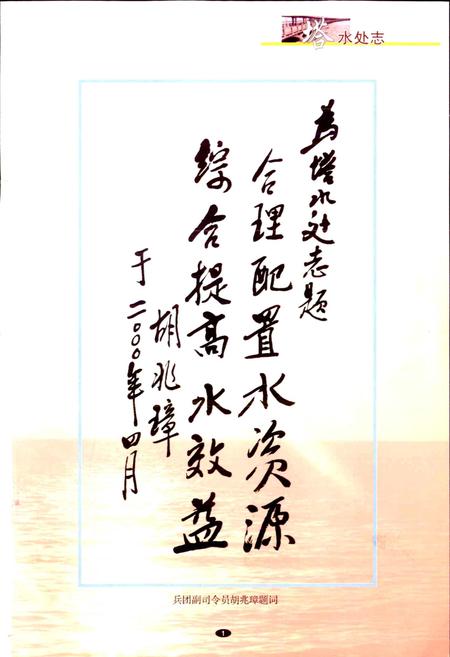 塔水处志
为塔水处志题
合理配置水资源
综合提高水效益
胡兆璋
于二〇〇〇年四月
兵团副司令员胡兆璋题词
1